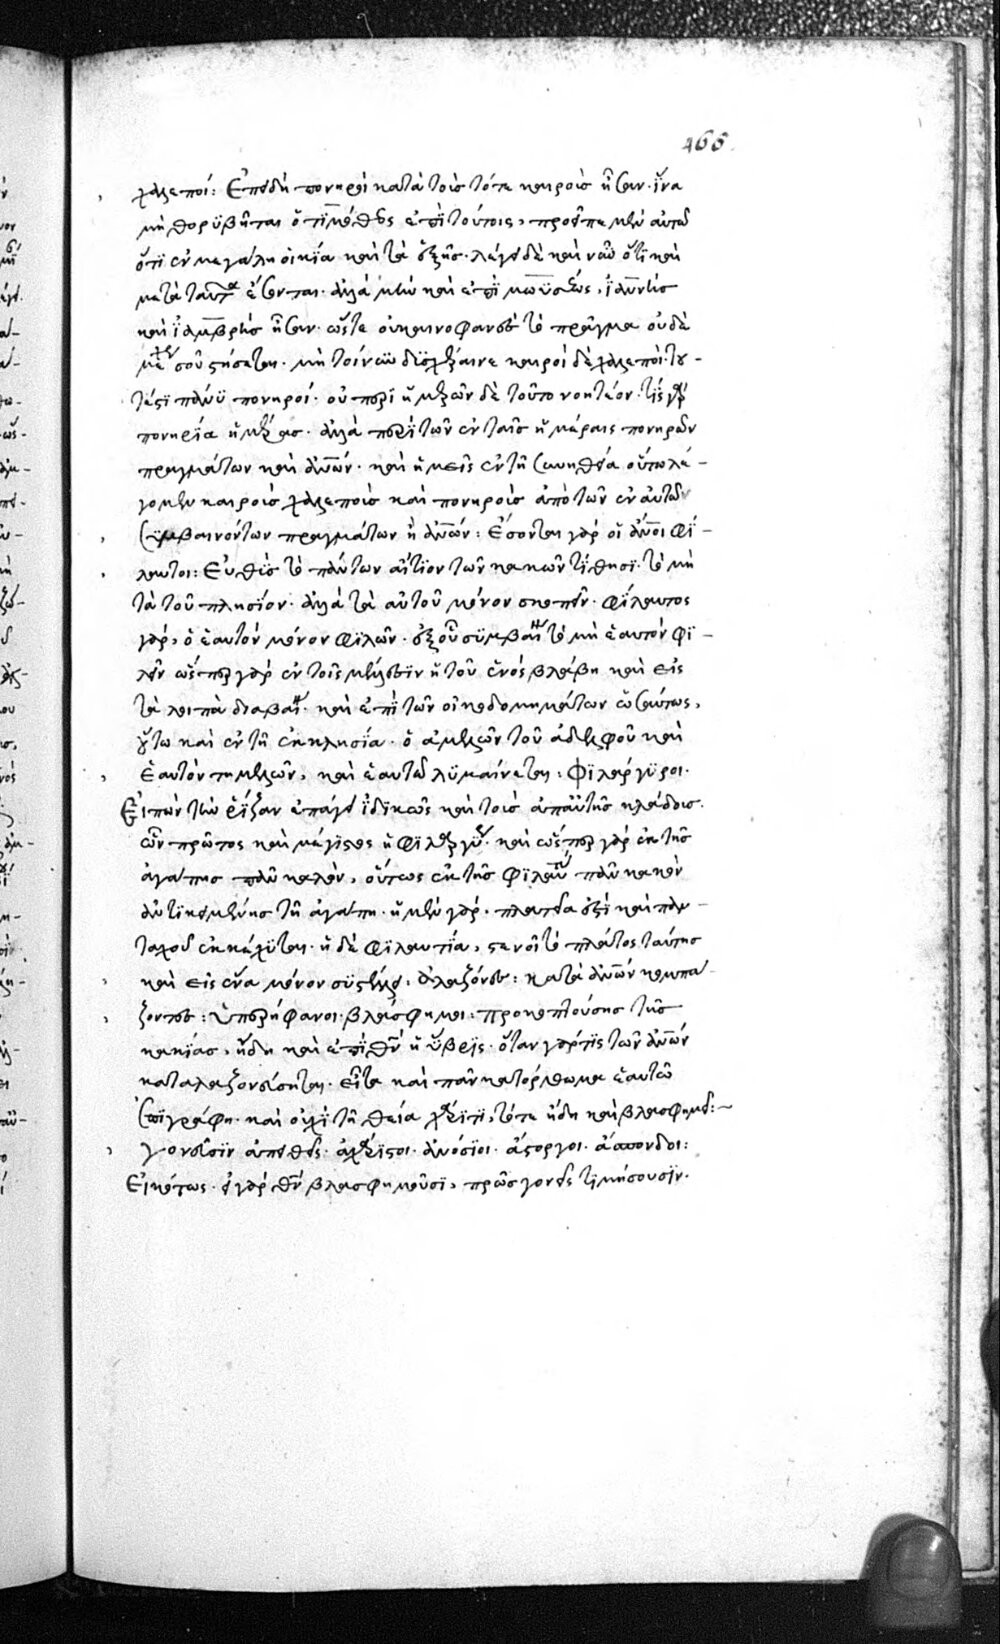 466
χαλεποί: Ἐπειδὴ πονηροὶ κατὰ τοὺς τότε καιροὺς ἦσαν. ἵνα
μὴ θορυβῆται ὁ τιμόθεος ἐπὶ τούτοις, προεῖπε μὲν αὐτῶ
ὅτι ἐν μεγάλη οἰκία καὶ τὰ ἑξῆς. λέγει δὲ καὶ νῦν ὅτι καὶ
μετὰ ταῦτα ἔσονται. ἀλλὰ μὴν καὶ ἐπὶ μωϋσέως, ἰαννῆς
καὶ ἰαμβρῆς ἦσαν. ὥστε οὐ καινοφανὲς τὸ πρᾶγμα οὐδὲ
μέχρι σοῦ στήσεται. μὴ τοίνυν δυσχέραινε καιροὶ δὲ χαλεποὶ. του-
τέστι πάνυ πονηροί. οὐ περὶ ἡμερῶν δὲ τοῦτο νοητέον. τίς γὰρ
πονηρία ἡμέρας. ἀλλὰ περὶ τῶν ἐν ταῖς ἡμέραις πονηρῶν
πραγμάτων καὶ ἀνῶν. καὶ ἡμεῖς ἐν τῆ συνηθεία οὕτω λέ-
γομεν καιροὺς χαλεποὺς καὶ πονηροὺς ἀπὸ τῶν ἐν αὐτῶ
συμβαινόντων πραγμάτων ἢ ἀνῶν: Ἔσονται γὰρ οἱ ἄνοι φί-
λαυτοι: Εὐθὺς τὸ πάντων αἴτιον τῶν κακῶν τίθησι. τὸ μὴ
τὰ τοῦ πλησίον. ἀλλὰ τὰ αὑτοῦ μόνον σκοπεῖν. φίλαυτος
γὰρ, ὁ ἑαυτὸν μόνον φιλῶν. ἐξ οὗ συμβαίνει τὸ μὴ ἑαυτὸν φι-
λεῖν ὥσπερ γὰρ ἐν τοῖς μέλεσιν ἡ τοῦ ἑνὸς βλάβη καὶ εἰς
τὰ λοιπὰ διαβαίνει. καὶ ἐπὶ τῶν οἰκοδομημάτων ὡσαύτως,
οὕτω καὶ ἐν τῆ ἐκκλησία. ὁ ἀμελῶν τοῦ ἀδελφοῦ καὶ
ἑαυτὸν ἠμελῶν, καὶ ἑαυτῶ λυμαίνεται: Φιλάργυροι.
Εἰπὼν τὴν ῥίζαν ἐπάγει ἰδικῶς καὶ τοὺς ἀπ' αὐτῆς κλάδους.
ὧν πρῶτος καὶ μέγιστος ἡ φιλαργυρία. καὶ ὥσπερ γὰρ ἐκ τῆς
ἀγάπης πᾶν καλὸν, οὕτως ἐκ τῆς φιλαυτίας πᾶν κακὸν
ἀντικειμένης τῆ ἀγάπη. ἡ μὲν γὰρ. πλατεῖα ἐστὶ καὶ παν-
ταχοῦ ἐκκέχυται. ἡ δὲ φιλαυτία, στενοῖ τὸ πλάτος ταύτης
καὶ εἰς ἕνα μόνον συστέλλει: ἀλαζόνες: Κατὰ ἀνῶν κομπά-
ζοντες: Ὑπερήφανοι. βλάσφημοι: Προκοπτούσης τῆς
κακίας, ἤδη καὶ ἐπὶ θν ἡ ὕβρις. ὅταν γάρ τις τῶν ἀνῶν
καταλαζονεύσηται. εἶτα καὶ πᾶν κατόρθωμα ἑαυτῶ
ἐπιγράφη. καὶ οὐχὶ τῆ θεία χάριτι, τότε ἤδη καὶ βλασφημεῖ:~
γονεῦσιν ἀπειθεῖς. ἀχάριστοι. ἀνόσιοι. ἄστοργοι. ἄσπονδοι:
Εἰκότως. εἰ γὰρ θν βλασφημοῦσι, πῶς γονεῖς τιμήσουσιν.